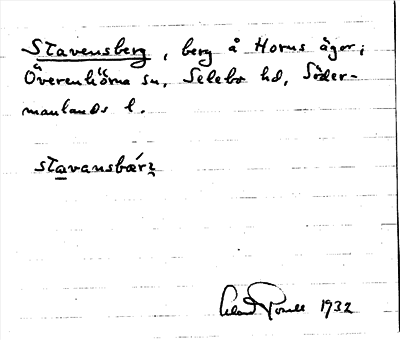 Stavensberg, berg å Horns ägor;
Överenhörna sn, Selebo hd, Söder-
manlands l.
stavansbær
1932